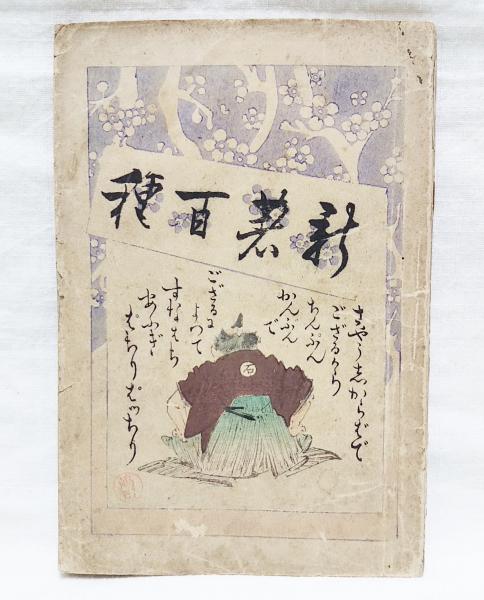 新著百種
さやう志からばで
ござるから
ちんぷん
かんぷん
で
ござるに
よつて
すなはち
あふぎ
ぱちりぱツちり
石